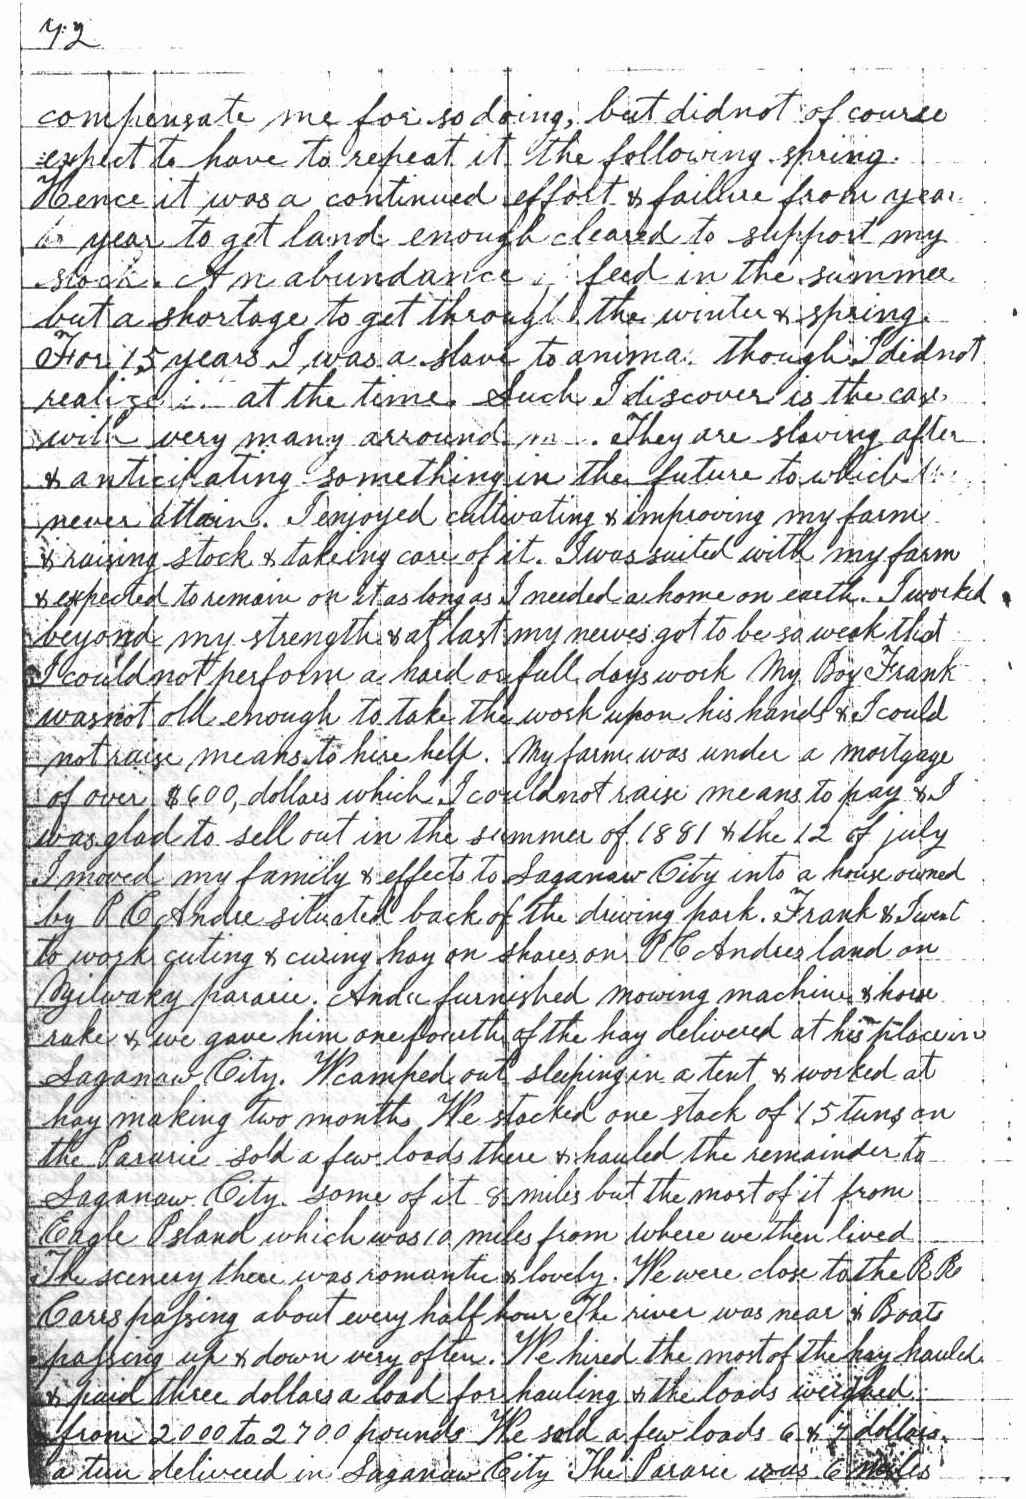 72
compensate me for so doing, but did not of course
expect to have to repeat it the following spring.
Hence it was a continued effort & failure from year
to year to get land enough cleared to support my
stock. An abundance feed in the summer
but a shortage to get through the winter & spring.
For 15 years I was a slave to animal though I did not
realize it at the time. Such I discover is the case
with very many arround me. They are slaving after
& anticipating something in the future to which
never attain. I enjoyed cultivating & improving my farm
& raising stock & takeing care of it. I was suited with my farm
& expected to remain on it as long as I needed a home on earth. I worked
beyond my strength & at last my nerves got to be so weak that
I could not perform a hard or full days work My Boy Frank
was not old enough to take the work upon his hands & I could
not raise means to hire help. My farm was under a mortgage
of over $600, dollars which I could not raise means to pay & I
was glad to sell out in the summer of 1881 & the 12 of july
I moved my family & effects to Saganaw City into a house owned
by P C Andre situated back of the driving park. Frank & I went
to work cuting & curing hay on shares on P C Andres land on
pararie. Andre furnished mowing machine & horse
rake & we gave him one fourth of the hay delivered at his place in
Saganaw City. We camped out sleeping in a tent & worked at
hay making two months We stacked one stack of 15 tuns on
the Pararie sold a few loads there & hauled the remainder to
Saganaw City. some of it 8 miles but the most of it from
Eagle Island which was 10 miles from where we then lived
The scenery there was romantic & lovely. We were close to the R R
Carrs passing about every half hour The river was near & Boats
passing up & down very often. We hired the most of the hay hauled
& paid three dollars a load for hauling & the loads weighed
from 2000 to 2700 pounds We sold a few loads 6 & 7 dollars.
a tun delivered in Saganaw City The Pararie was 6 miles